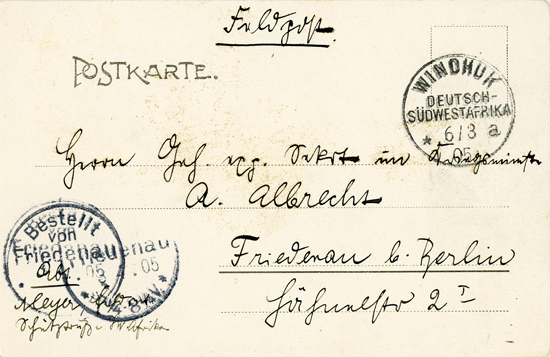 Feldpost.
POSTKARTE.
WINDHUK
DEUTSCH-
SÜDWESTAFRIKA
* 6/3 a
05
Herrn Geh. exp. Sekret. im Kriegsminist
A. Albrecht
Friedenau b. Berlin
2 I
Bestellt
von
Friedenau
Abs
05
*
Meyer,
Schutztruppe SWAfrika